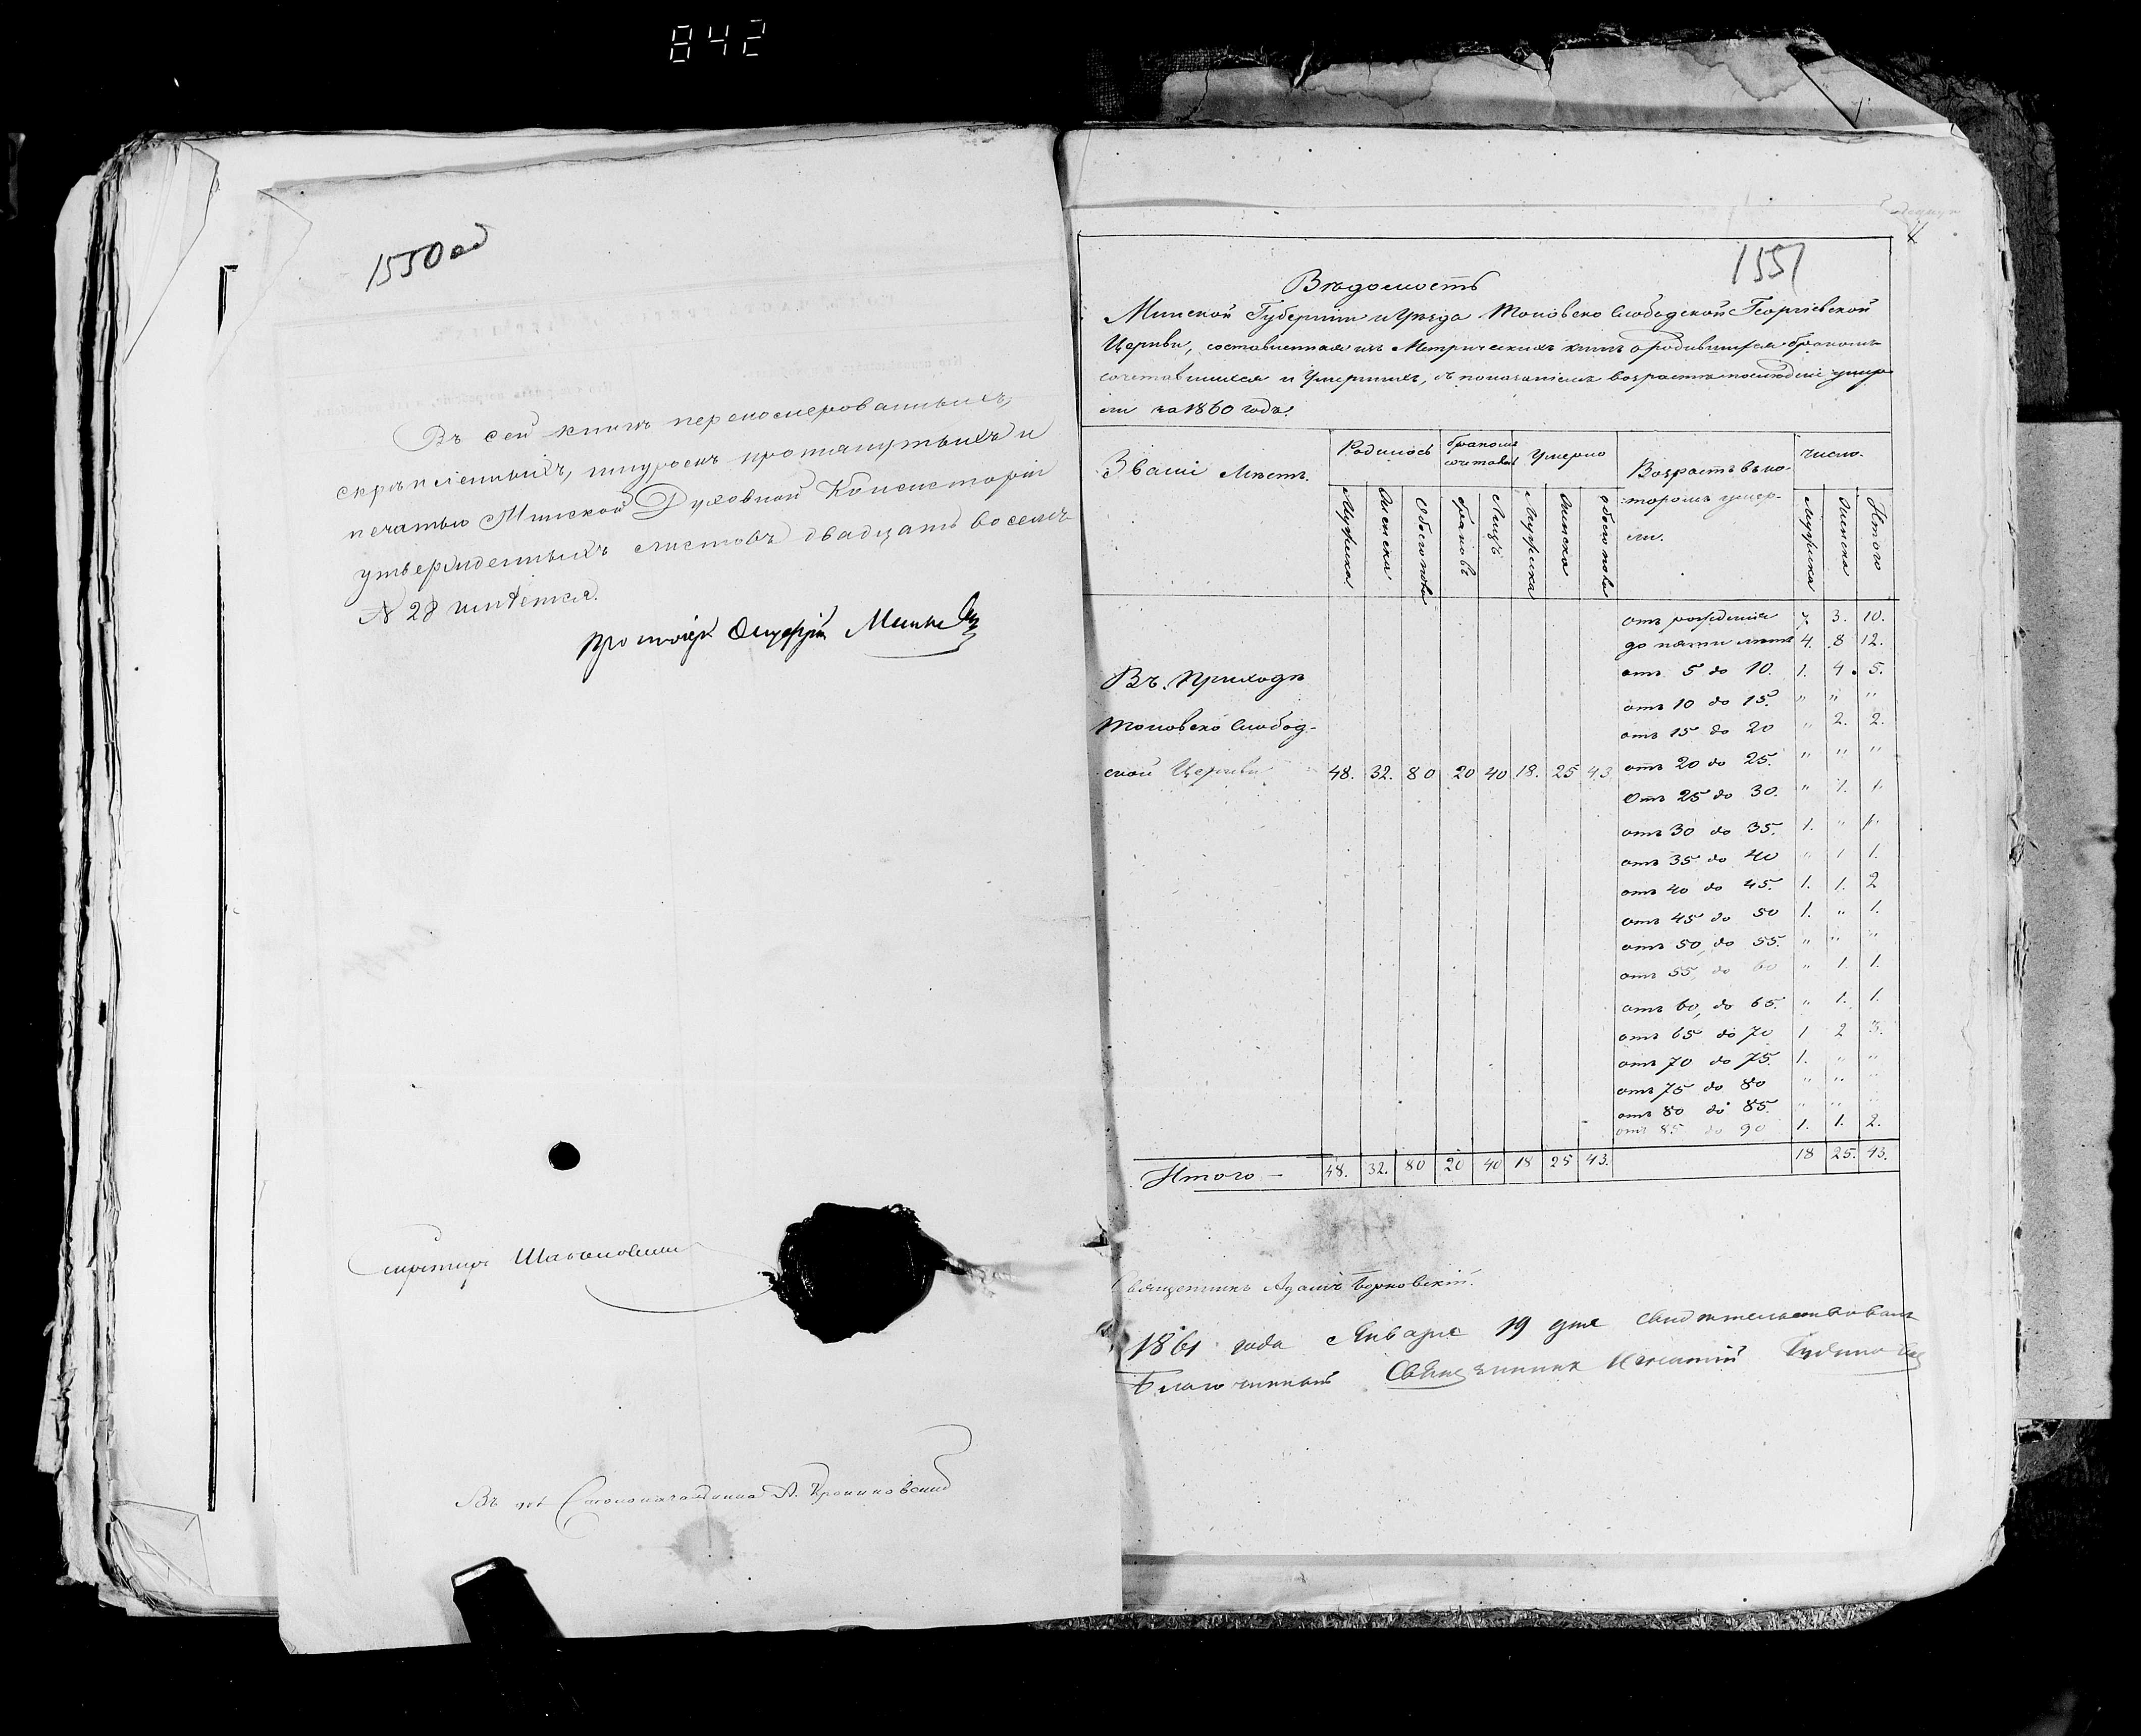 842
1550 об
Въ сей книгѣ перенумерованныхъ,
скрѣпленныхъ, шнуромъ протянутыхъ и
печатью Минской Духовной Консисторіи
утвержденныхъ листовъ двадцать восемь
№ 28 имѣется.
Протоіерей
Секретарь
Въ д. Столоначальника А.
1551
Вѣдомость
Минской Губерніи и Уѣзда Слободской Георгіевской
Церкви, составленная изъ Метрическихъ книгъ о родившихся бракомъ
сочетавшихся и Умершихъ, съ показаніемъ возраста послѣдніе умер
ли за 1860 годъ.
Званіе Мѣстъ. Родилось бракомъ сочетавш Умерло Возрастъ въ ко- число.
торомъ умер-
ли.
Мужска. Женска Обоего пола браковъ Лицъ Мужска Женска обоего пола Мужска Женска Итого
отъ рожденія 7. 3. 10.
до пяти лѣтъ 4. 8 12.
Въ. Приходѣ отъ 5 до 10. 1. 4. 5.
отъ 10 до 15. " " "
Слобод- отъ 15 до 20 " 2. 2.
ской Церкви 48. 32. 80 20 40 18. 25 43 отъ 20 до 25. " " "
Отъ 25 до 30. " 1. 1.
отъ 30 до 35. 1. " 1.
отъ 35 до 40 " 1 1.
отъ 40 до 45. 1. 1. 2
отъ 45 до 50 1. " 1.
отъ 50, до 55. " " "
отъ 55, до 60 " 1. 1.
отъ 60, до 65. " 1. 1.
отъ 65 до 70 1 2 3.
отъ 70 до 75. 1. " "
отъ 75 до 80 " " "
отъ 80 до 85. " " "
отъ 85 до 90 1. 1. 2.
Итого — 48. 32. 80 20 40 18 25 43. 18 25. 43.
Священникъ Адамъ Борковскій.
1861 года Января 19 дня свидѣтельствовалъ
Благочинный Священникъ Игнатій